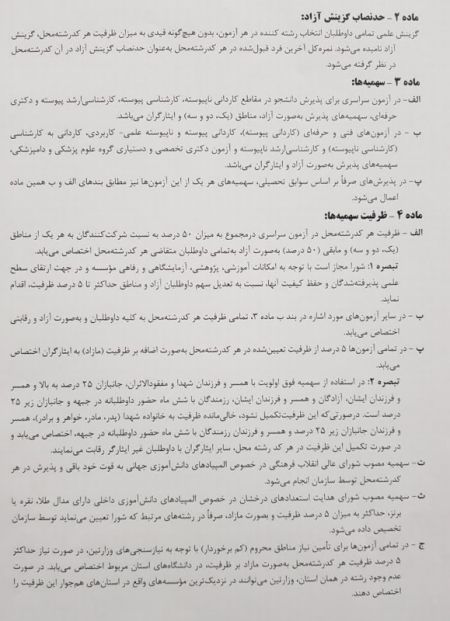 ماده ۲ - حدنصاب گزینش آزاد:
گزینش علمی تمامی داوطلبان انتخاب رشته کننده در هر آزمون، بدون هیچ‌گونه قیدی به میزان ظرفیت هر کدرشته‌محل، گزینش
آزاد نامیده می‌شود. نمره‌کل آخرین فرد قبول‌شده در هر کدرشته‌محل به‌عنوان حدنصاب گزینش آزاد در آن کدرشته‌محل
در نظر گرفته می‌شود.
ماده ۳ - سهمیه‌ها:
الف- در آزمون سراسری برای پذیرش دانشجو در مقاطع کاردانی ناپیوسته، کارشناسی پیوسته، کارشناسی‌ارشد پیوسته و دکتری
حرفه‌ای، سهمیه‌های پذیرش به‌صورت آزاد، مناطق (یک، دو و سه) و ایثارگران می‌باشد.
ب - در آزمون‌های فنی و حرفه‌ای (کاردانی پیوسته)، کاردانی پیوسته و ناپیوسته علمی- کاربردی، کاردانی به کارشناسی
(کارشناسی ناپیوسته) و کارشناسی‌ارشد ناپیوسته و آزمون دکتری تخصصی و دستیاری گروه علوم پزشکی و دامپزشکی،
سهمیه‌های پذیرش به‌صورت آزاد و ایثارگران می‌باشد.
پ- در پذیرش‌های صرفاً بر اساس سوابق تحصیلی، سهمیه‌های هر یک از این آزمون‌ها نیز مطابق بندهای الف و ب همین ماده
اعمال می‌شود.
ماده ۴ - ظرفیت سهمیه‌ها:
الف - ظرفیت هر کدرشته‌محل در آزمون سراسری درمجموع به میزان ۵۰ درصد به نسبت شرکت‌کنندگان به هر یک از مناطق
(یک، دو و سه) و مابقی (۵۰ درصد) به‌صورت آزاد به‌تمامی داوطلبان متقاضی هر کدرشته‌محل اختصاص می‌یابد.
تبصره ۱: شورا مجاز است با توجه به امکانات آموزشی، پژوهشی، آزمایشگاهی و رفاهی مؤسسه و در جهت ارتقای سطح
علمی پذیرفته‌شدگان و حفظ کیفیت آنها، نسبت به تعدیل سهم داوطلبان آزاد و مناطق حداکثر تا ۵ درصد ظرفیت، اقدام
نماید.
ب - در سایر آزمون‌های مورد اشاره در بند ب ماده ۳، تمامی ظرفیت هر کدرشته‌محل به کلیه داوطلبان و به‌صورت آزاد و رقابتی
اختصاص می‌یابد.
پ - در تمامی آزمون‌ها ۵ درصد از ظرفیت تعیین‌شده در هر کدرشته‌محل به‌صورت اضافه بر ظرفیت (مازاد) به ایثارگران اختصاص
می‌یابد.
تبصره ۲: در استفاده از سهمیه فوق اولویت با همسر و فرزندان شهدا و مفقودالاثران، جانبازان ۲۵ درصد به بالا و همسر
و فرزندان ایشان، آزادگان و همسر و فرزندان ایشان، رزمندگان با شش ماه حضور داوطلبانه در جبهه و جانبازان زیر ۲۵
درصد است. درصورتی‌که این ظرفیت‌تکمیل نشود، خالی‌مانده ظرفیت به خانواده شهدا (پدر، مادر، خواهر و برادر)، همسر
و فرزندان جانبازان زیر ۲۵ درصد و همسر و فرزندان رزمندگان با شش ماه حضور داوطلبانه در جبهه، اختصاص می‌یابد و
در صورت تکمیل این ظرفیت در هر کد رشته محل، سایر ایثارگران با داوطلبان غیر ایثارگر رقابت می‌نمایند.
ت- سهمیه مصوب شورای عالی انقلاب فرهنگی در خصوص المپیادهای دانش‌آموزی جهانی به قوت خود باقی و پذیرش در هر
کدرشته‌محل توسط سازمان انجام می‌شود.
ث- سهمیه مصوب شورای هدایت استعدادهای درخشان در خصوص المپیادهای دانش‌آموزی داخلی دارای مدال طلا، نقره یا
برنز، حداکثر به میزان ۵ درصد ظرفیت و بصورت مازاد، صرفاً در رشته‌های مرتبط که شورا تعیین می‌نماید توسط سازمان
تخصیص داده می‌شود.
ج - در تمامی آزمون‌ها برای تأمین نیاز مناطق محروم (کم برخوردار) با توجه به نیازسنجی‌های وزارتین، در صورت نیاز حداکثر
۵ درصد ظرفیت هر کدرشته‌محل به‌صورت مازاد بر ظرفیت، در دانشگاه‌های استان مربوط اختصاص می‌یابد. در صورت
عدم وجود رشته در همان استان، وزارتین می‌توانند در نزدیک‌ترین مؤسسه‌های واقع در استان‌های هم‌جوار این ظرفیت را
اختصاص دهند.